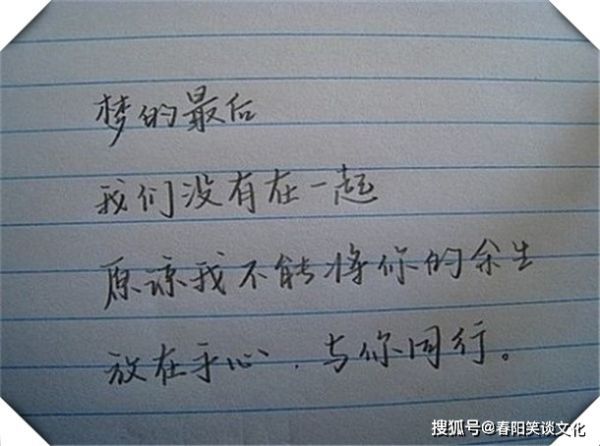 梦的最后
我们没有在一起
原谅我不能将你的余生
放在手心、与你同行。
搜狐号@春阳笑谈文化